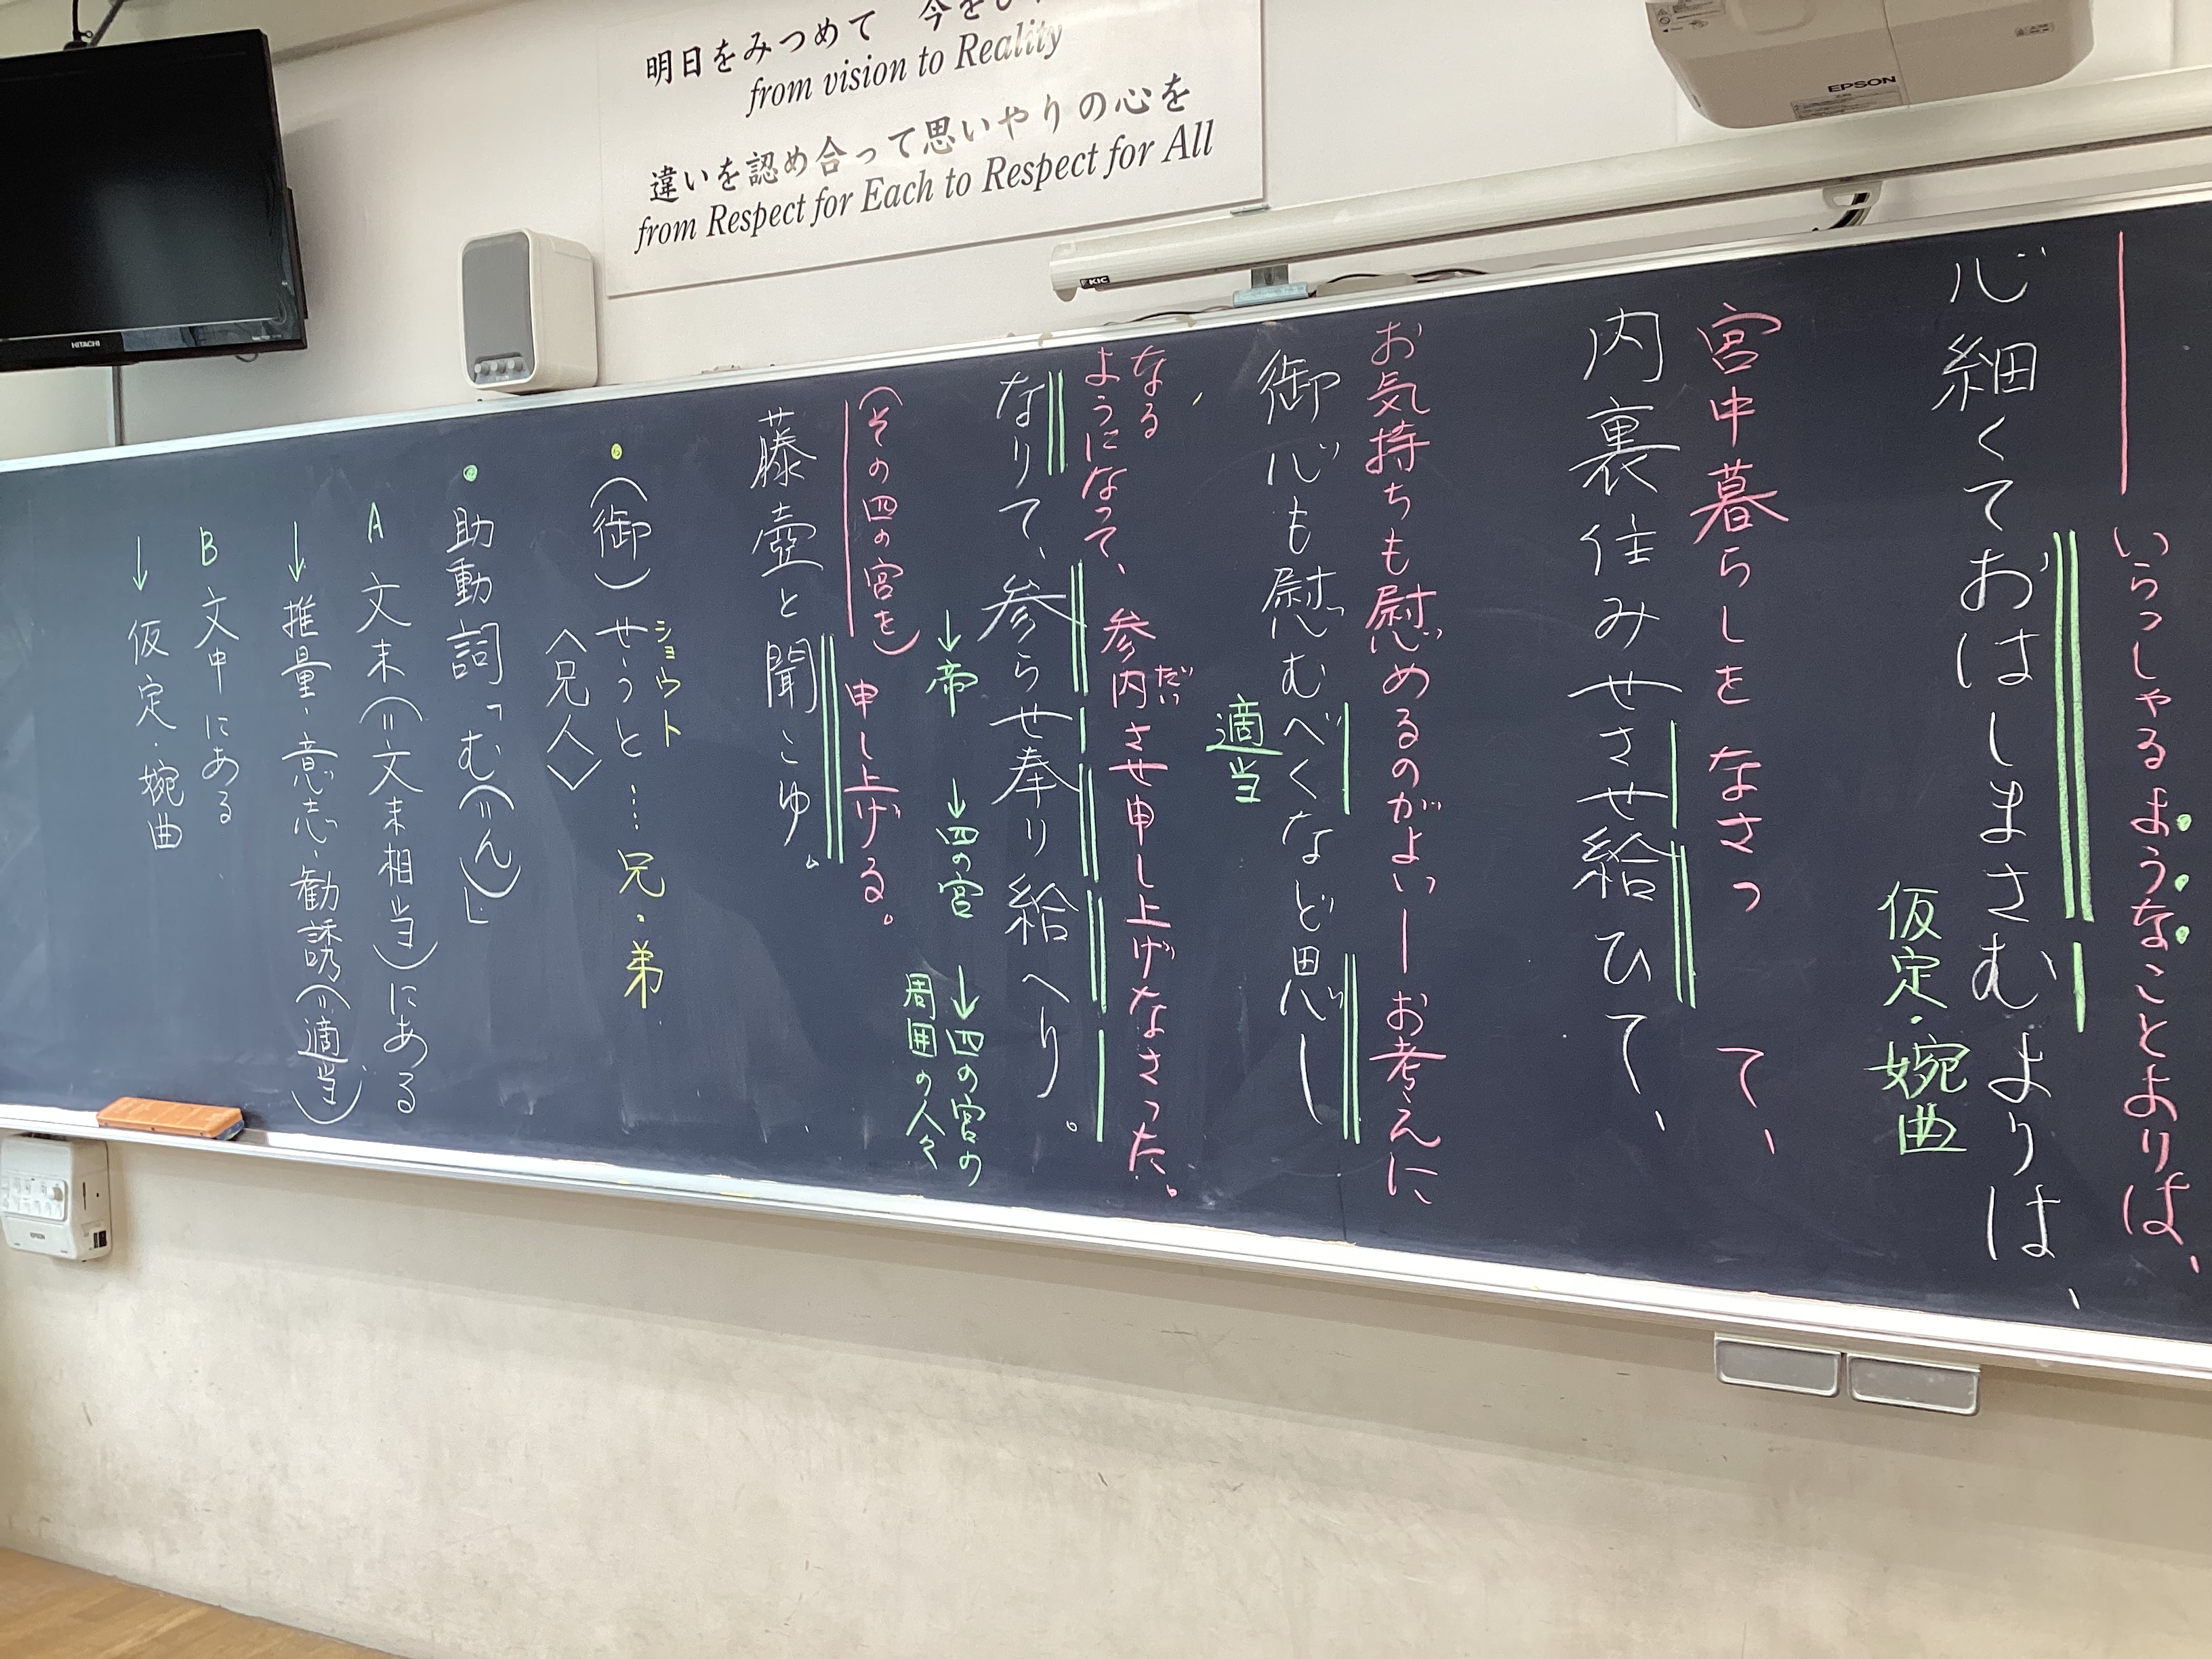 明日をみつめて 今を
from vision to Reality
違いを認め合って思いやりの心を
from Respect for Each to Respect for All
EPSON
KIC
HITACHI
いらっしゃるようなことよりは、
心細くておはしまさむよりは、
仮定・婉曲
宮中暮らしをなさって、
内裏住みせさせ給ひて、
お気持ちも慰めるのがよいーお考えに
御心も慰むべくなど思し
適当
なる
ようになって、参内させ申し上げなさった。
だい
なりて、参らせ奉り給へり。
↓帝 ↓四の宮 ↓四の宮の
周囲の人々
(その四の宮を) 申し上げる。
藤壺と聞こゆ。
ショウト
・(御)せうと…兄・弟
〈兄人〉
・助動詞「む(=ん)」
A 文末(=文末相当)にある
↓推量・意志・勧誘(=適当)
B 文中にある
↓仮定・婉曲
EPSON